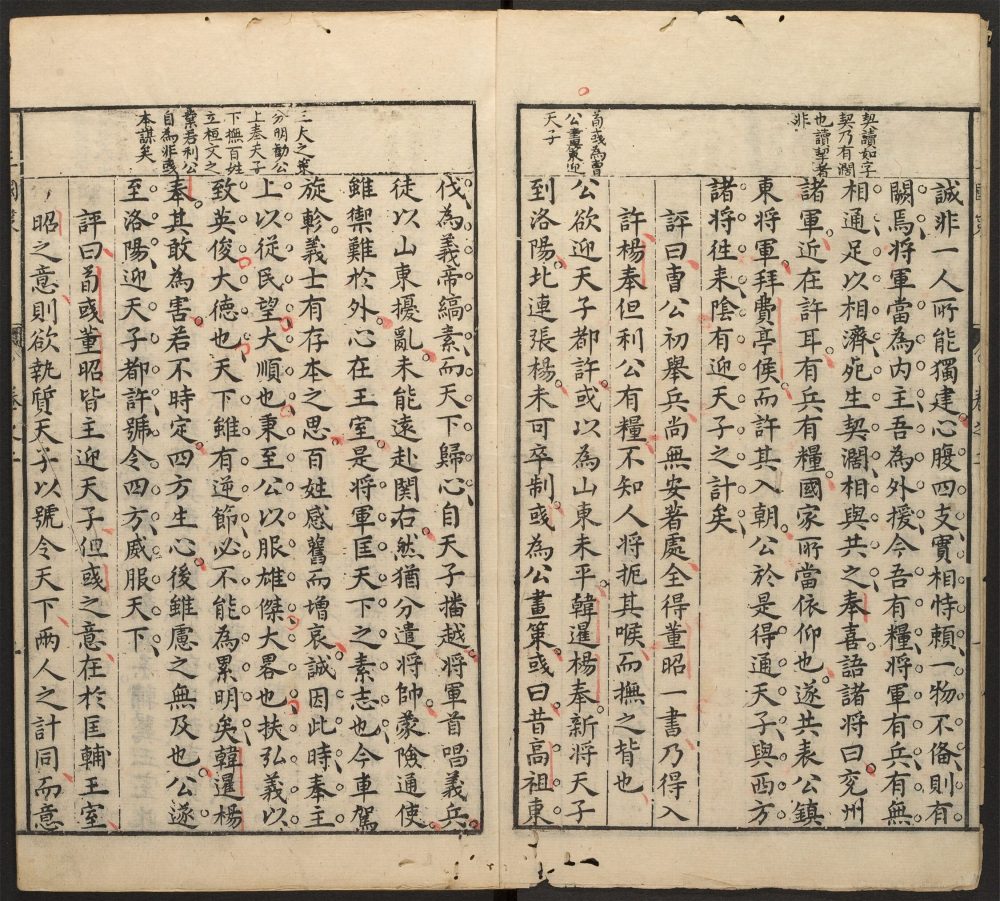 契讀如字
契乃有濶
也讀挈者
非
荀彧為曹
公畫策迎
天子
誠非一人所能獨建心腹四支實相恃賴一物不俻則有
闕焉將軍當為内主吾為外援今吾有糧將軍有兵有無
相通足以相濟死生契濶相與共之奉喜語諸將曰兖州
諸軍近在許耳有兵有糧國家所當依仰也遂共表公鎮
東將軍拜費亭侯而許其入朝公於是得通天子與西方
諸將徃来隂有迎天子之計矣
評曰曹公初舉兵尚無安著處全得董昭一書乃得入
許楊奉但利公有糧不知人將扼其喉而撫之背也
公欲迎天子都許或以為山東未平韓暹楊奉新將天子
到洛陽北連張楊未可卒制彧為公畫策彧曰昔高祖東
三大之策
分明勸公
上奉天子
下撫百姓
立桓文之
業若利公
自為非彧
本謀矣
伐為義帝縞素而天下歸心自天子播越將軍首唱義兵
徒以山東擾亂未能遠赴関右然猶分遣將帥蒙險通使
雖禦難於外心在王室是將軍匡天下之素志也今車駕
旋軫義士有存本之思百姓感舊而增哀誠因此時奉主
上以從民望大順也秉至公以服雄傑大畧也扶弘義以
致英俊大德也天下雖有逆節必不能為累明矣韓暹楊
奉其敢為害若不時定四方生心後雖慮之無及也公遂
至洛陽迎天子都許號令四方威服天下
評曰荀彧董昭皆主迎天子但彧之意在於匡輔王室
昭之意則欲執質天子以號令天下兩人之計同而意